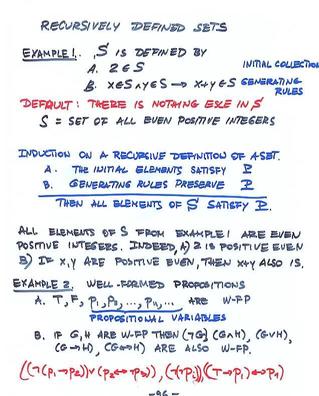 RECURSIVELY DEFINED SETS
EXAMPLE 1. S IS DEFINED BY
A. 2 ∈ S INITIAL COLLECTION
B. X∈S ∧ Y∈S → X+Y ∈ S GENERATING RULES
DEFAULT: THERE IS NOTHING ELSE IN S
S = SET OF ALL EVEN POSITIVE INTEGERS
INDUCTION ON A RECURSIVE DEFINITION OF A SET.
A. THE INITIAL ELEMENTS SATISFY P
B. GENERATING RULES PRESERVE P
THEN ALL ELEMENTS OF S SATISFY P.
ALL ELEMENTS OF S FROM EXAMPLE 1 ARE EVEN
POSITIVE INTEGERS. INDEED, A) 2 IS POSITIVE EVEN
B) IF X,Y ARE POSITIVE EVEN, THEN X+Y ALSO IS.
EXAMPLE 2. WELL-FORMED PROPOSITIONS
A. T, F, P₁, P₂, ..., Pₙ, ... ARE W-FP
PROPOSITIONAL VARIABLES
B. IF G,H ARE W-FP THEN (¬G) (G∧H), (G∨H),
(G→H), (G↔H) ARE ALSO W-FP.
((¬(P₁→P₂))∨(P₂↔P₃)), (¬(¬P₁)), ((T→P₁)↔P₁)
-96-